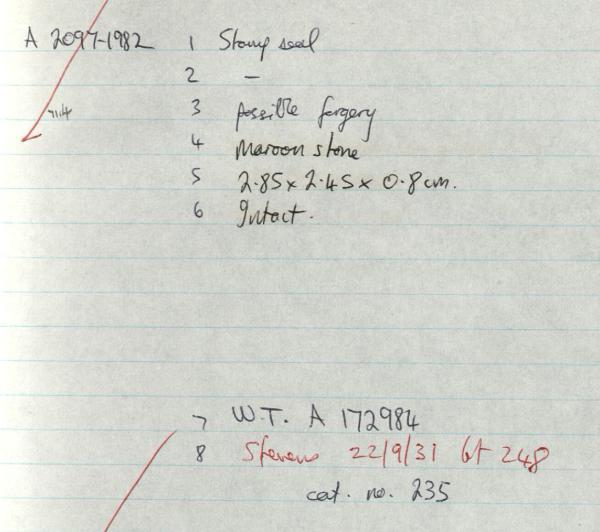 A 2097-1982 1 Stamp seal
2 —
3 possible forgery
4 Maroon stone
5 2.85 x 2.45 x 0.8 cm.
6 Intact.
7 W.T. A 172984
8 Stevens 22/9/31 lot 248
cat. no. 235